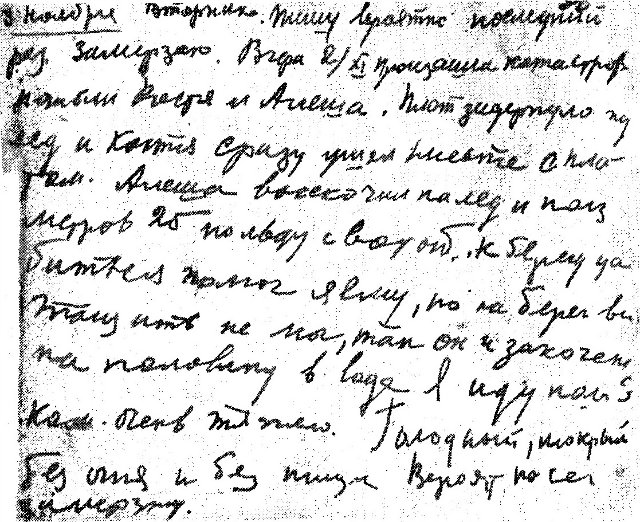 3 ноября Вторник. Пишу вероятно последний
раз Замерзаю. Вчера 2/XI произошла катастроф
погибли Костя и Алеша. Плот задернуло по
лед и Костя сразу ушел вместе с пло-
том. Алеша выскочил на лед и полз
метров 25 по льду с водой. К берегу
биться помог я ему, но на берег вы
тащить не мог, так он и закочене
на половину в воде Я иду полз
ком. Очень тяжело. Голодный, мокрый
без огня и без пищи Вероятно сег
замерзну.